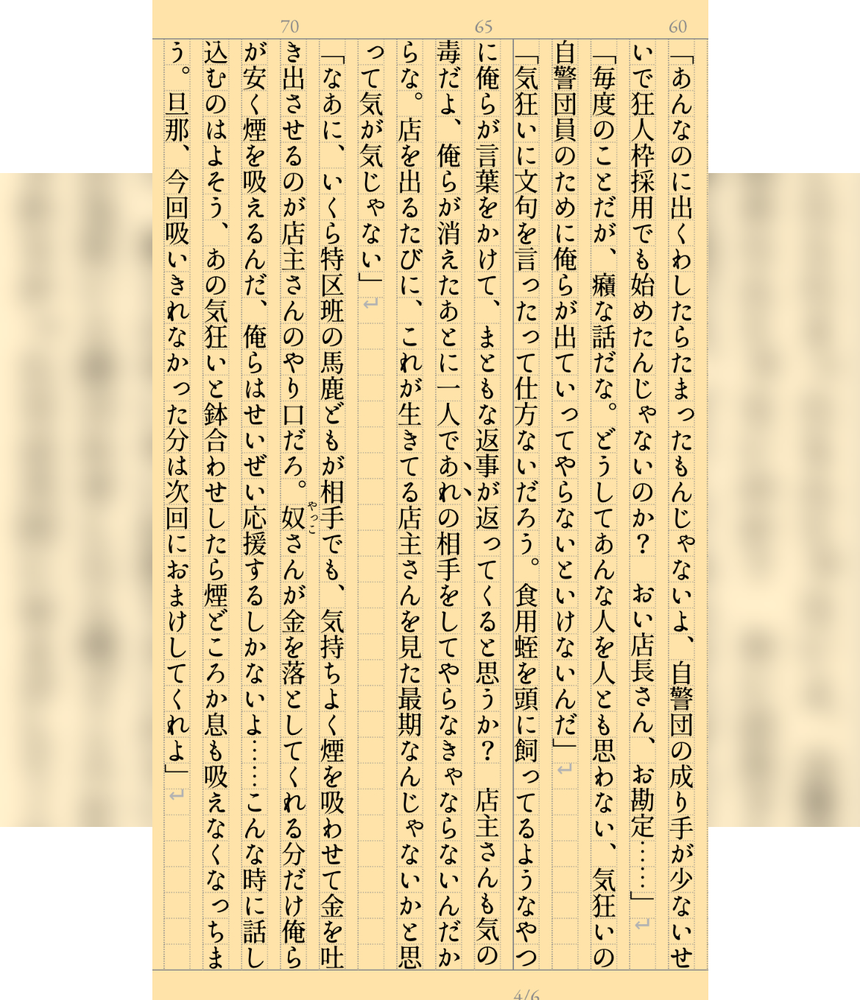 60
65
70
「あんなのに出くわしたらたまったもんじゃないよ、自警団の成り手が少ないせ
いで狂人枠採用でも始めたんじゃないのか？　おい店長さん、お勘定……」↵
「毎度のことだが、癪な話だな。どうしてあんな人を人とも思わない、気狂いの
自警団員のために俺らが出ていってやらないといけないんだ」↵
「気狂いに文句を言ったって仕方ないだろう。食用蛭を頭に飼ってるようなやつ
に俺らが言葉をかけて、まともな返事が返ってくると思うか？　店主さんも気の
毒だよ、俺らが消えたあとに一人であれの相手をしてやらなきゃならないんだか
らな。店を出るたびに、これが生きてる店主さんを見た最期なんじゃないかと思
って気が気じゃない」↵
「なあに、いくら特区班の馬鹿どもが相手でも、気持ちよく煙を吸わせて金を吐
き出させるのが店主さんのやり口だろ。奴さんが金を落としてくれる分だけ俺ら
やっこ
が安く煙を吸えるんだ、俺らはせいぜい応援するしかないよ……こんな時に話し
込むのはよそう、あの気狂いと鉢合わせしたら煙どころか息も吸えなくなっちま
う。旦那、今回吸いきれなかった分は次回におまけしてくれよ」↵
4/6